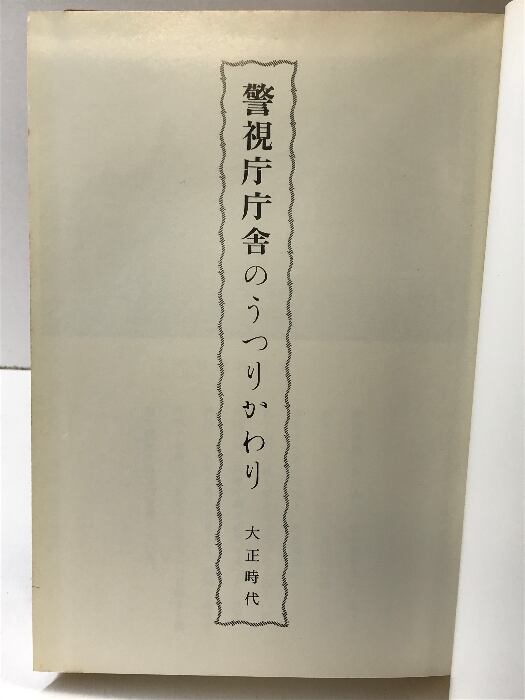 警視庁庁舎のうつりかわり 大正時代